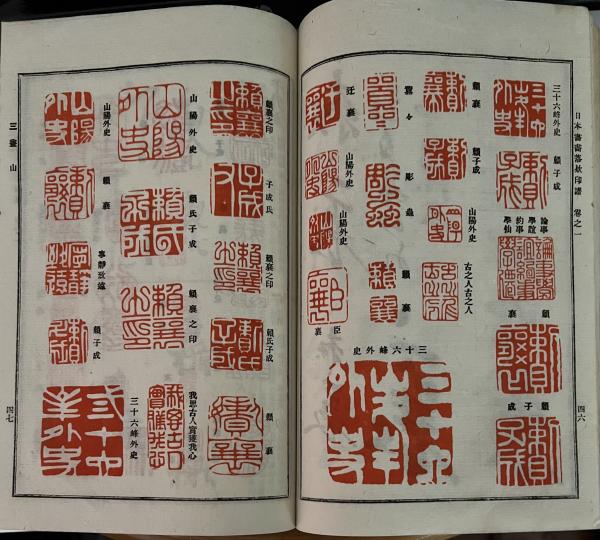 日本書畫落款印譜 卷之一
四六
三十六峰外史
賴子成
論學
學誼
約事
學仙
賴襄
賴子成
賴襄
賴子成
山陽外史
古之人古之人
鴛々
彫蟲
賴襄
三十六峰外史
迂襄
山陽外史
山陽外史
臣襄
賴襄之印
子成氏
賴襄之印
賴氏子成
賴襄
山陽外史
賴氏子成
賴襄之印
我思古人實獲我心
三十六峰外史
山陽外史
賴襄
寧靜致遠
賴子成
三 山
四七